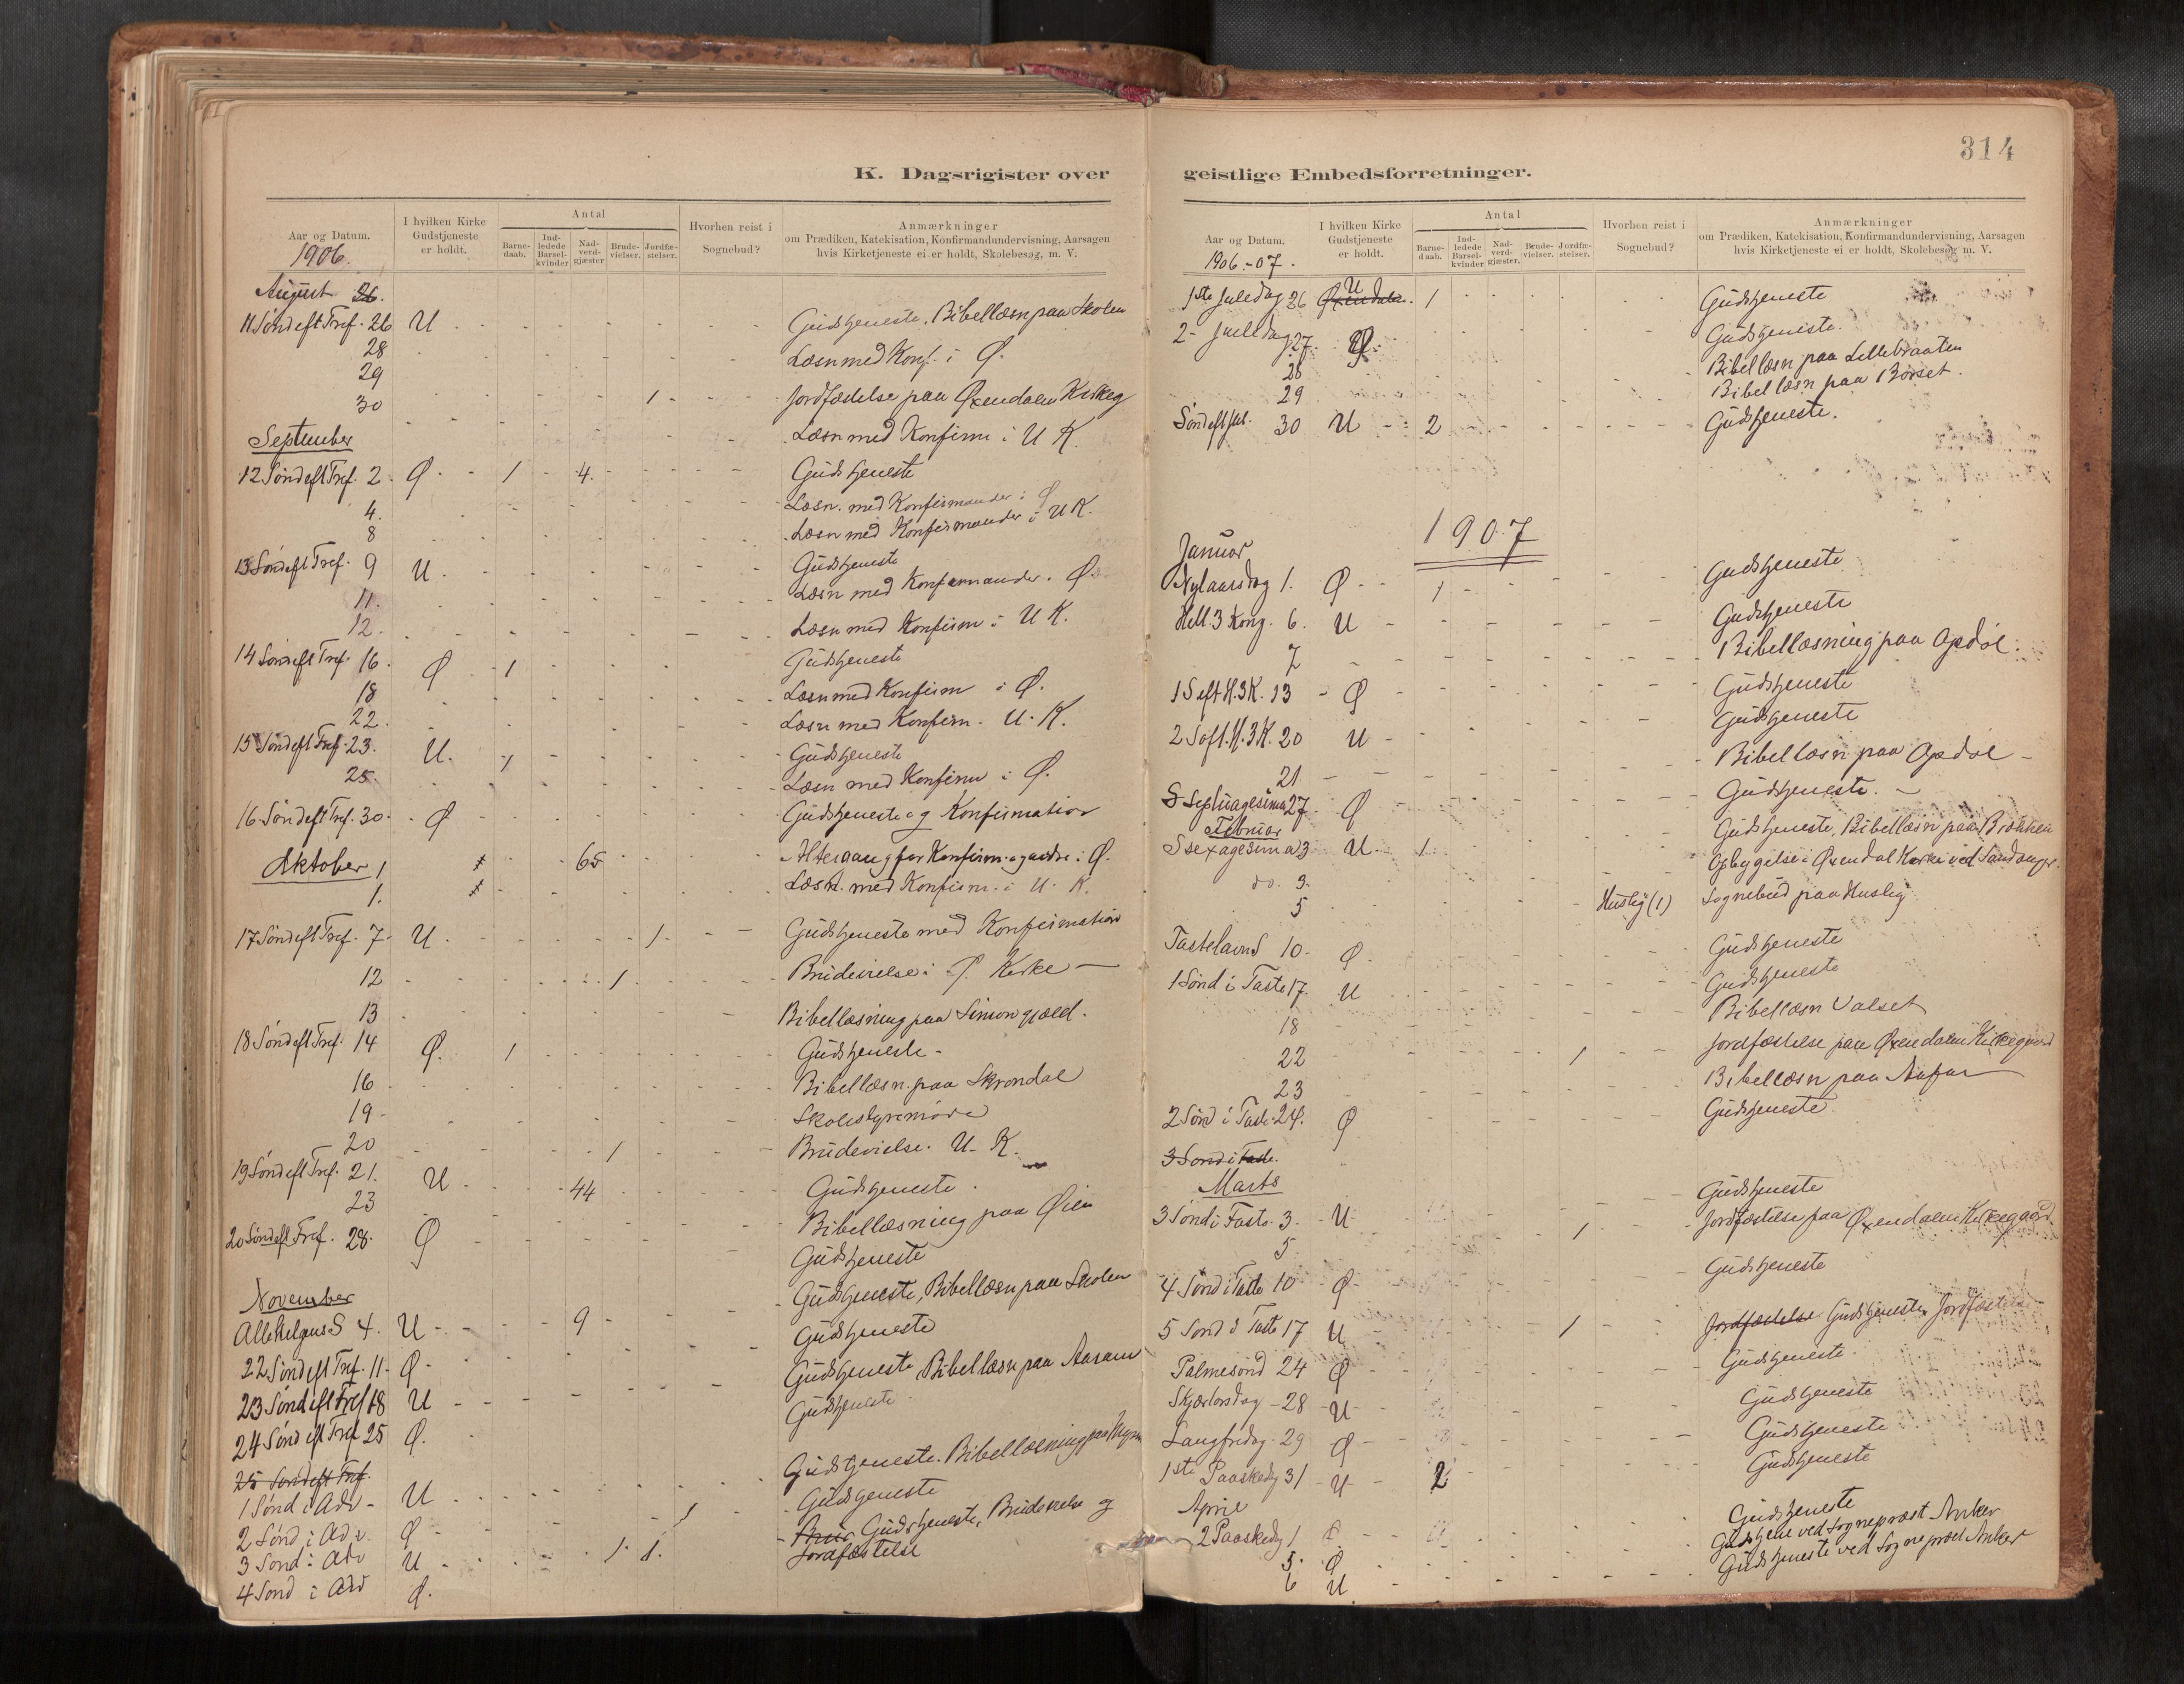 K. Dagsrigister over
Aar og Datum.
1906.
I hvilken Kirke Gudstjeneste er holdt.
Antal
Barnedaab.
Indledede Barselkvinder
Nadverdgjæster
Brudevielser.
Jordfæstelser.
Hvorhen reist i Sognebud?
Anmærkninger
om Prædiken, Katekisation, Konfirmandundervisning, Aarsagen
hvis Kirketjeneste ei er holdt, Skolebesøg, m. V.
August 26.
11 Sønd eft Tref. 26 U Gudstjeneste. Bibellæsn paa Skolen
28 Læsn med Konf. i Ø.
29
30 1 Jordfæstelse paa Øxendalen Kirkeg
September Læsn med Konfirm i U K.
12 Sønd eft Tref. 2 Ø 1 4 Gudstjeneste
4. Læsn. med Konfirmander i Ø
8 Læsn med Konfirmander i U K.
13 Sønd eft Tref. 9 U Gudstjeneste
11. Læsn med Konfirmander. Ø
12. Læsn med Konfirm i U K.
14 Sønd eft Tref. 16. Ø 1 Gudstjeneste
18 Læsn med Konfirm i Ø.
22. Læsn med Konfirm. U. K.
15 Sønd eft Tref. 23. U. 1 Gudstjeneste
25. Læsn med Konfirm i Ø.
16 Sønd eft Tref. 30. Ø Gudstjeneste og Konfirmation
Oktober 1 65 Altergang for Konfirm. og andre i Ø.
1. Læsn. med Konfirm. i U. K.
17 Sønd eft Tref. 7 U. 1. Gudstjeneste med Konfirmation
12 1 Brudevielse i Ø. Kirke
13 Bibellæsning paa Simongjæld.
18 Sønd eft Tref. 14 Ø. 1 Gudstjeneste
16 Bibellæsn. paa Skrondal
19 Skolestyremøde
20 1 Brudevielse. U. K.
19 Sønd eft Tref. 21. U 44 Gudstjeneste
23 Bibellæsning paa Øien
20 Sønd eft Tref. 28. Ø Gudstjeneste
November
Allehelgens S 4. U 9 Gudstjeneste, Bibellæsn paa Skolen
22 Sønd eft Tref. 11 Ø Gudstjeneste
23 Sønd eft Tref 18 U Gudstjeneste Bibellæsn paa
24 Sønd eft Tref 25 Ø. Gudstjeneste
25 Sønd eft Tref.
1 Sønd i Adv U Gudstjeneste. Bibellæsning paa
2 Sønd i Adv. Ø Gudstjeneste
3 Sønd i Adv U 1 1. Gudstjeneste, Brudevielse og
Jordfæstelse
4 Sønd i Adv Ø.
314
geistlige Embedsforretninger.
Aar og Datum.
1906.-07.
I hvilken Kirke Gudstjeneste er holdt.
Antal
Barnedaab.
Indledede Barselkvinder
Nadverdgjæster.
Brudevielser.
Jordfæstelser.
Hvorhen reist i Sognebud?
Anmærkninger
om Prædiken, Katekisation, Konfirmandundervisning, Aarsagen
hvis Kirketjeneste ei er holdt, Skolebesøg m. V.
1ste Juledag 26 Øxendalen. U 1 Gudstjeneste
2- Juledag 27. Ø. Gudstjeneste.
28 Bibellæsn paa Lillebraaten
29 Bibellæsn paa Børset.
Sønd eft Jul. 30 U 2 Gudstjeneste.
1907
Januar
Nytaarsdag 1. Ø 1 Gudstjeneste
Hell. 3 Kong. 6. U Gudstjeneste
7 Bibellæsning paa Opdøl.
1 S eft H.3K. 13 Ø Gudstjeneste
2 S eft. H.3K. 20 U Gudstjeneste
21 Bibellæsn paa Opdøl
S Septuagesima 27 Ø Gudstjeneste.
Februar
S sexagesima 3 U. 1 Gudstjeneste, Bibellæsn paa Brækken
do. 3. Opbyggelse i Øxendal Kirke ved
5 Husby (1) Sognebud paa Husby
Fastelavns S 10. Ø. Gudstjeneste
1 Sønd i Faste 17. U Gudstjeneste
18 Bibellæsn Valset
22 1 Jordfæstelse paa Øxendalen Kirkegaard
23 Bibellæsn paa
2 Sønd i Faste 24. Ø Gudstjeneste
3 Sønd i Faste.
Marts
3 Sønd i Faste. 3. U Gudstjeneste
5 1 Jordfæstelse paa Øxendalen Kirkegaard
4 Sønd i Faste 10 Ø Gudstjeneste
5 Sønd i Faste 17 U 1 Jordfæstelse Gudstjeneste Jordfæstelse
Palmesønd 24 Ø Gudstjeneste
Skjærtorsdag 28 U Gudstjeneste
Langfredag 29 Ø Gudstjeneste
1ste Paaskedg 31 U 2 Gudstjeneste
April
2 Paaskedg 1 Ø Gudstjeneste
5. Ø Gudstjene ved Sogneprest Anker
6 U Gudstjeneste ved Sogneprest Anker